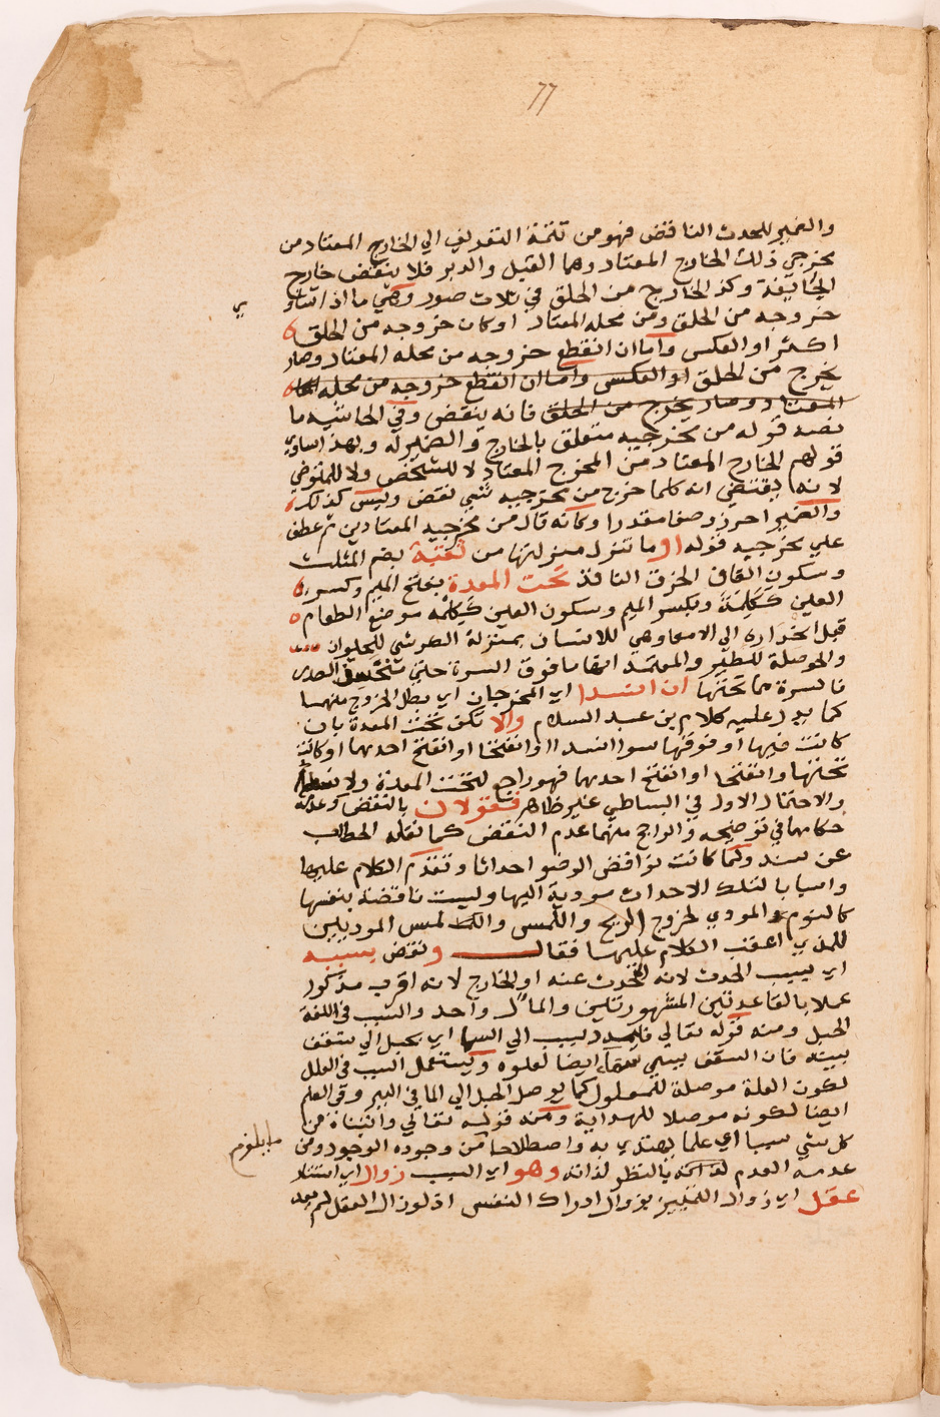 77
والضمير للحدث الناقض فهو من تتمة التعريف اي الخارج المعتاد من
مخرجي ذلك الخارج المعتاد وهما القبل والدبر فلا ينقض خارج
الجائفة وكذ الخارج من الحلق في ثلاث صور وهي ما اذا تساو
ي
خروجه من الحلق ومن محله المعتاد او كان خروجه من الحلق
اكثر او العكس واما ان انقطع خروجه من محله المعتاد وصار
يخرج من الحلق او العكس واما ان انقطع خروجه من محله
المعتاد وصار يخرج من الحلق فانه ينقض وفي الحاشيه ما
نصه قوله من مخرجيه متعلق بالخارج والضمير له وبهذا ساوي
قولهم الخارج المعتاد من المخرج المعتاد لا للشخص ولا للمتوضي
لانه يقتضي انه كلما خرج من مخرجيه شي نقض وليس كذلك
والضمير احرز وصفا مقدرا وكانه قال من مخرجيه المعتادين ثم عطف
علي مخرجيه قوله او ما تنزل منزلتها من ثقبة بضم المثلث
وسكون القاف الخرق النافذ تحت المعدة بفتح الميم وكسر
العين ككلمة وبكسر الميم وسكون العين ككلمه موضع الطعام
قبل انحداره الي الامعا وهي للانسان بمنزلة الكرش للحيوان
والحوصلة للطير والمعتمد انها ما فوق السرة حتي الصدر
فالسرة مما تحتها ان انسدا اي المخرجان اي بطل الخروج منهما
كما يدل عليه كلام بن عبد السلام والا تكن تحت المعدة بان
كانت فيها او فوقها سوا انسدا او انفتحا او انفتح احدهما او كانت
تحتها وانفتحا او انفتح احدهما فهو راجع لتحت المعدة ولا
والاحتمال الاول في البساطي غير ظاهر فقولان بالنقض وعدمه
حكاهما في توضيحه والراجح منهما عدم النقض كما نقله الحطاب
عن سند ولما كانت نواقض الوضو احداثا وتقدم الكلام عليها
واسبابا لتلك الاحداث مودية اليها وليست ناقضة بنفسها
كالنوم المودي لخروج الريح واللمس والمس الموديين
للمذي اعقب الكلام عليهما فقال ونقض بسببه
اي بسبب الحدث لانه المحدث عنه او الخارج لانه اقرب مذكور
عملا بالقاعدتين المشهورتين والمال واحد والسبب في اللغة
الحبل ومنه قوله تعالي فليمدد بسبب الي السما اي بحبل الي سقف
بيته فان السقف يسمي سما ايضا لعلوه ويستعمل السبب في العلل
لكون العلة موصلة للمعلول كما يوصل الحبل الي الما في البير وفي العلم
ايضا لكونه موصلا للهداية ومنه قوله تعالي واتيناه من
كل شي سببا اي علما يهتدي به واصطلاحا من وجوده الوجود ومن
ما يلزم
عدمه العدم لذاته بالنظر لذاته وهو اي السبب زوال اي استتار
عقل اي زوال التمييز بزوال ادراك النفس اذ لو زال العقل لم يعد